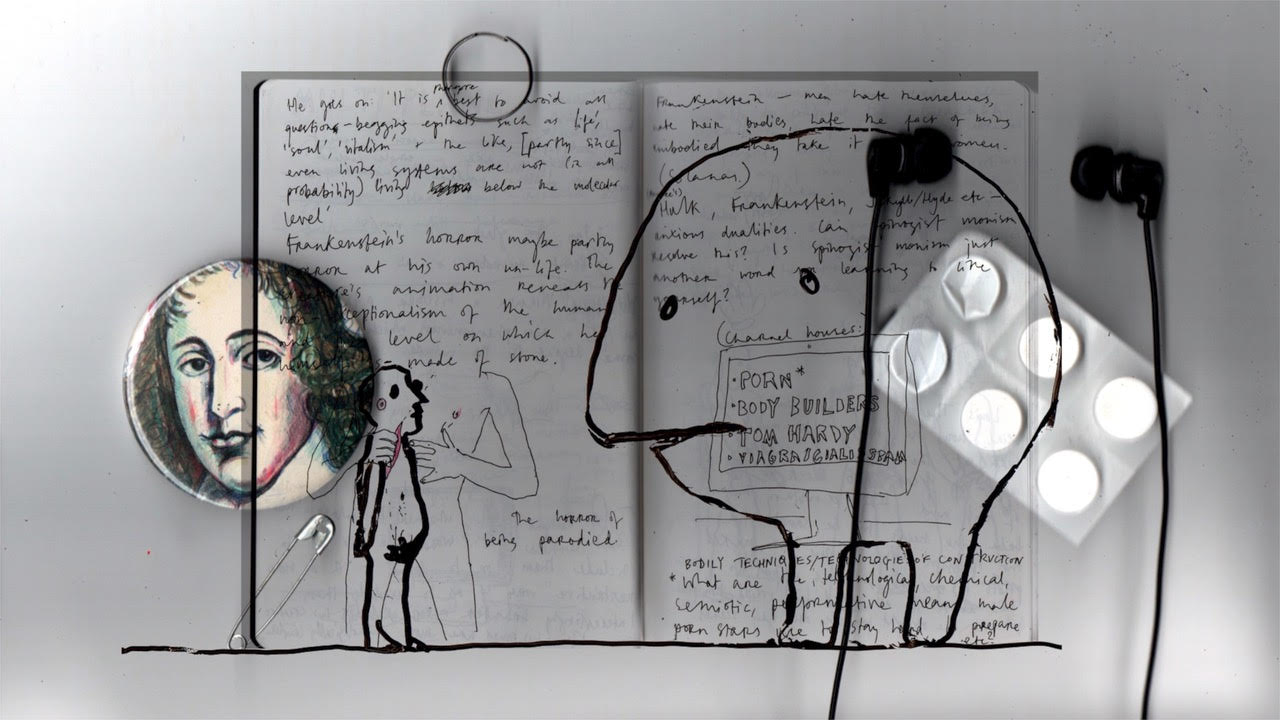 He goes on: 'It is therefore best to avoid all
question-begging epithets such as life,
'soul', 'vitalism' & the like, [partly since]
even living systems are not (in all
probability) living below the molecular
level'
Frankenstein's horror maybe partly
horror at his own un-life. The
creature's animation reveals the
exceptionalism of the human
level on which he
made of stone.
the horror of
being parodied
Frankenstein – men hate themselves,
hate their bodies, hate the fact of being
embodied. They take it women.
Hulk, Frankenstein, Jekyll/Hyde etc –
anxious dualities. Can spinozist monism
resolve this? Is spinozist monism just
another word learning to like
yourself?
(Charnel houses:)
• PORN*
• BODY BUILDERS
• TOM HARDY
• VIAGRA/CIALIS SPAM
BODILY TECHNIQUES/TECHNOLOGIES OF CONSTRUCTION
* What are the, technological, chemical,
semiotic, performative means male
porn stars use to stay hard & prepare
etc?